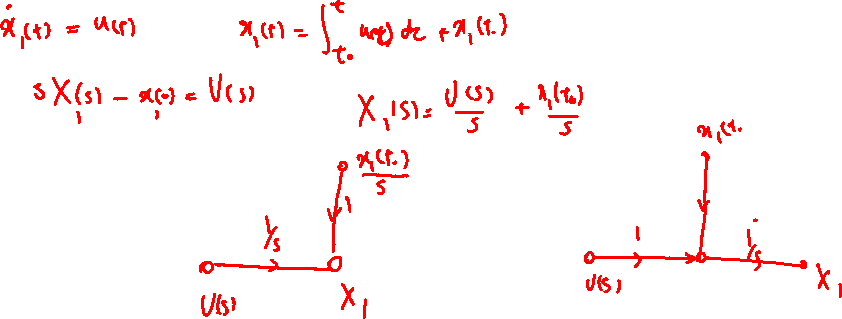 ẋ₁(t) = u(t)    x₁(t) = ∫_{t₀}^{t} u(τ) dτ + x₁(t₀)
s X₁(s) − x₁(0) = U(s)    X₁(s) = U(s)/s + x₁(t₀)/s
x₁(t₀)/s    x₁(t₀
1/s    1    1    1/s
U(s)    X₁    U(s)    X₁